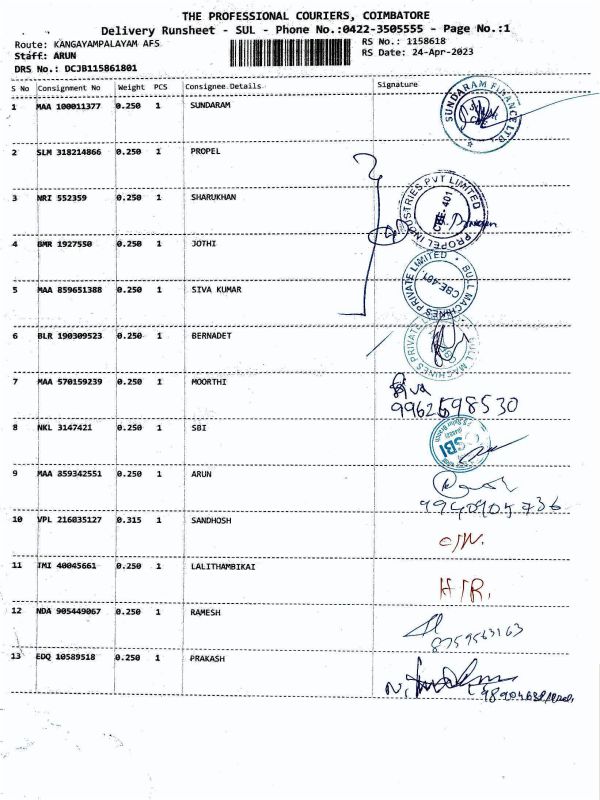 THE PROFESSIONAL COURIERS, COIMBATORE
Delivery Runsheet - SUL - Phone No.:0422-3505555 - Page No.:1
Route: KANGAYAMPALAYAM AFS RS No.: 1158618
Staff: ARUN RS Date: 24-Apr-2023
DRS No.: DCJB115861801
S No Consignment No Weight PCS Consignee Details Signature
1 MAA 100011377 0.250 1 SUNDARAM
SUNDARAM FINANCE LTD.
2 SLM 318214866 0.250 1 PROPEL
3 NRI 552359 0.250 1 SHARUKHAN
PROPEL INDUSTRIES PVT LIMITED
CBE-401
4 BMR 1927550 0.250 1 JOTHI
5 MAA 859651388 0.250 1 SIVA KUMAR
BULL MACHINES PRIVATE LIMITED
CBE-401.
6 BLR 190309523 0.250 1 BERNADET
BULL MACHINES PRIVATE LIMITED
7 MAA 570159239 0.250 1 MOORTHI
Siva
8 NKL 3147421 0.250 1 SBI
SBI
9 MAA 859342551 0.250 1 ARUN
10 VPL 216035127 0.315 1 SANDHOSH
11 TMI 40045661 0.250 1 LALITHAMBIKAI
12 NDA 905449067 0.250 1 RAMESH
8759563163
13 EDQ 10589518 0.250 1 PRAKASH